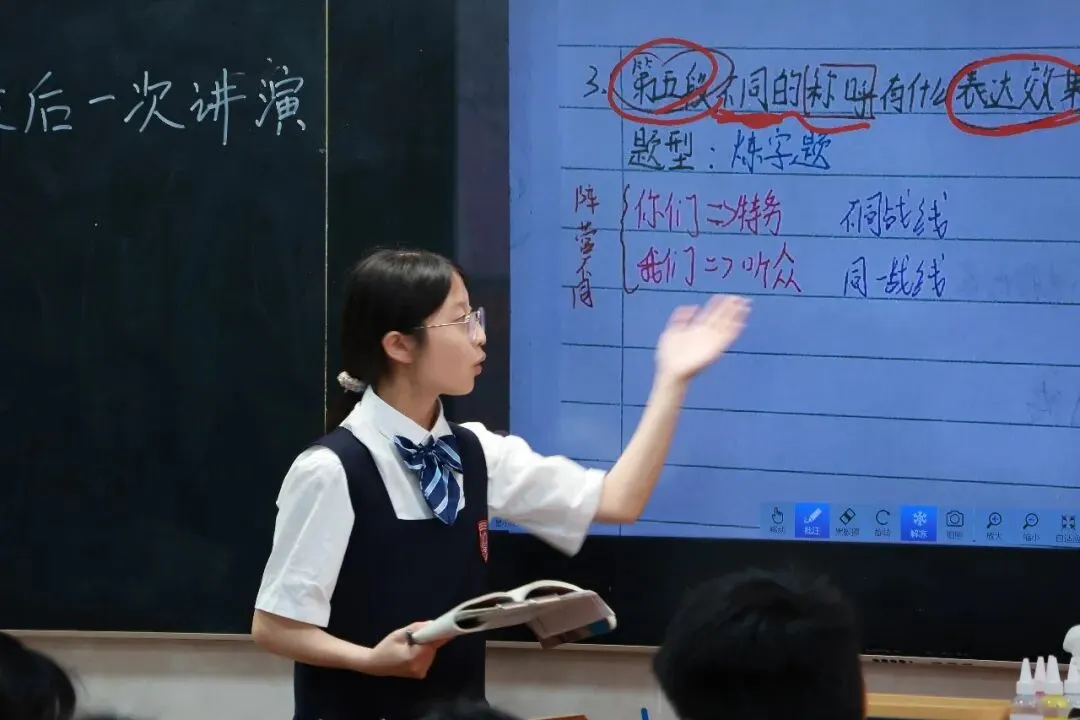 后一次讲演
3. 第五段不同的称呼有什么表达效果
题型：炼字题
阵营不同
你们=>特务 不同战线
我们=>听众 同一战线
移动 批注 旋转 解冻 放大 缩小